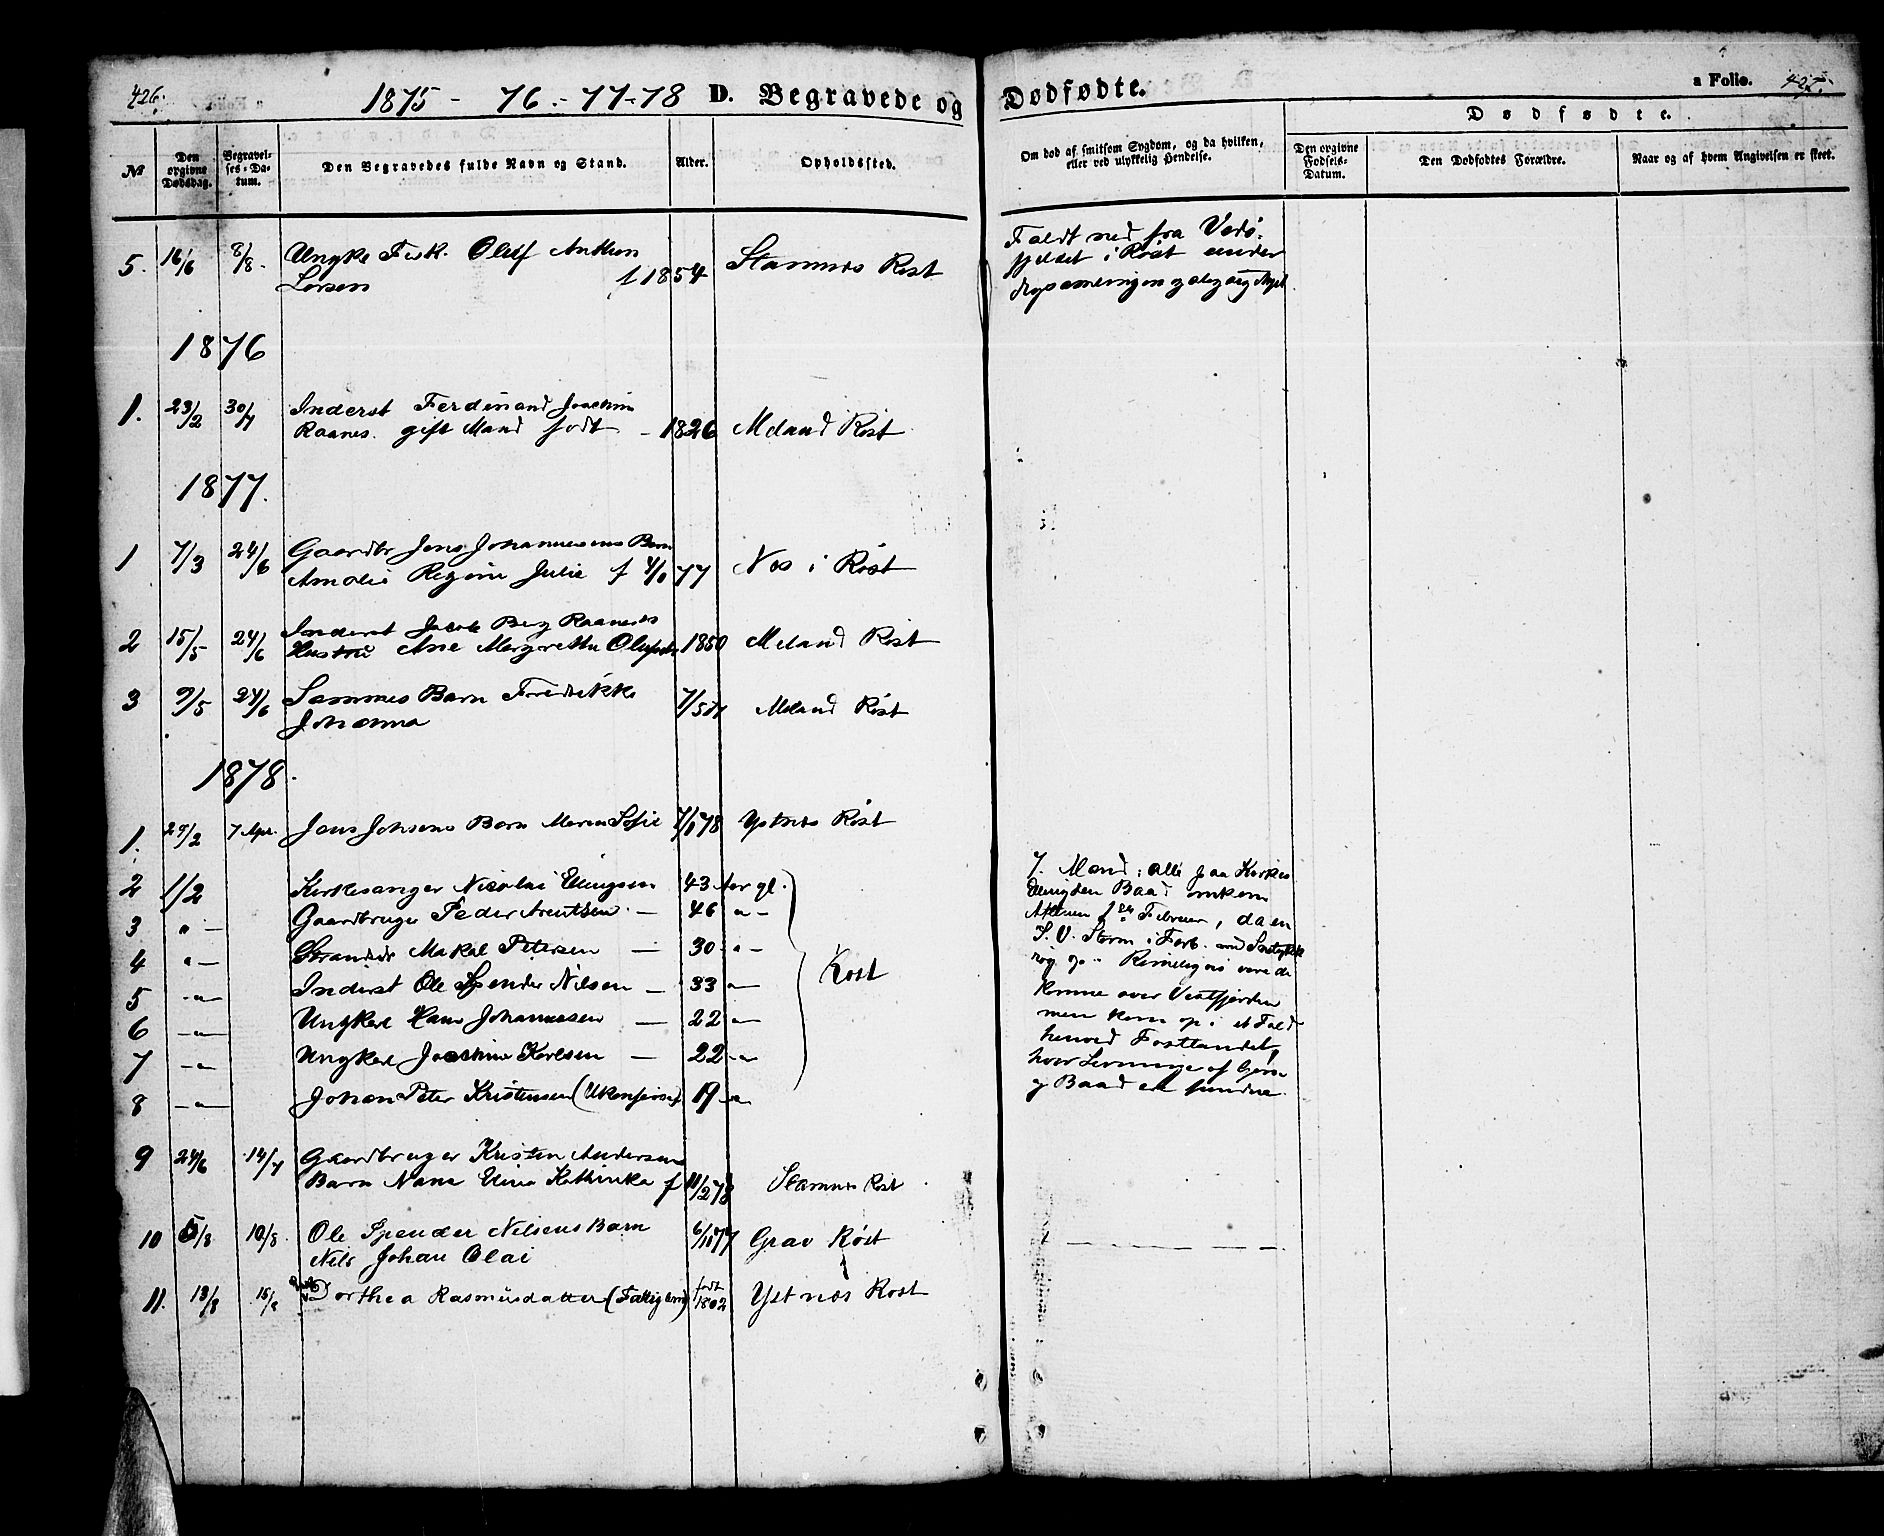 426.
1875 - 76 - 77 - 78 D. Begravede og Dødfødte.
a Folio. 427.
№
Den opgivne Dødsdag.
Begravelses-Datum.
Den Begravedes fulde Navn og Stand.
Alder.
Opholdssted.
Om død af smitsom Sygdom, og da hvilken, eller ved ulykkelig Hendelse.
Dødfødte.
Den opgivne Fødsels-Datum.
Den Dødfødtes Forældre.
Naar og af hvem Angivelsen er skeet.
5. 16/6 8/8. Ungke Fisk. Oluf Anthon
Larsen f 1854 Stamnes Røst
Faldt ned fra Vedø-
fjeldet i Røst under
1876
1. 23/2 30/7 Inderst Ferdinand Joachim
Raanes. gift Mand født - 1826 Meland Røst
1877.
1 7/3 24/6 Gaardbr Jens Johannesens Barn
Amalie Regine Julie f 4/1 77 Nes i Røst
2 15/5 24/6 Inderst Jacob Berg Raanes's
Hustru Ane Margrethe Olufsdr 1850 Meland Røst
3 9/5 24/6 Sammes Barn Fredrikke
Johanna 7/5 77 Meland Røst
1878.
1. 27/2 7 Apr. Jens Johsens Barn Maren Sofie 7/1 78 Ystnes Røst
2 1/2 Kirkesanger Nicolai Ellingsen 43 Aar gl.
3 " — Gaardbruger Peder Arentsen — 46 " -
4 " — Strandsidr Makal Petersen — 30 - " -
5 - " — Inderst Ole Spender Nilsen — 33 " —
6 — " — Ungkarl Hans Johannesen — 22 " —
7 — " Ungkarl Joachim Karlsen — 22 - "
8 — " — Johan Peter Kristensen ( 19 "
Røst
7. Mand, alle paa Kirkes.
Ellingsen Baad omkom
Aftenen 1ste Februar, da en
S. V. Storm i Forb. med
Rimeligvis vare de
komne over Vestfjorden
men kom op i et Fald
henved Fastlandet,
hvor Levninge af Gjøre
og Baad ere fundne.
9 24/6 14/7 Gaardbruger Kristen Andersens
Barn Nana Elina Kathinka f 11/2 78 Stamnes Røst
10 5/8 10/8. Ole Spender Nilsens Barn
Nils Johan Olai 6/11 77 Grav Røst
11. 13/8 15/8 Dorthea Rasmusdatter (Fattiglem) født 1802 Ystnes Røst